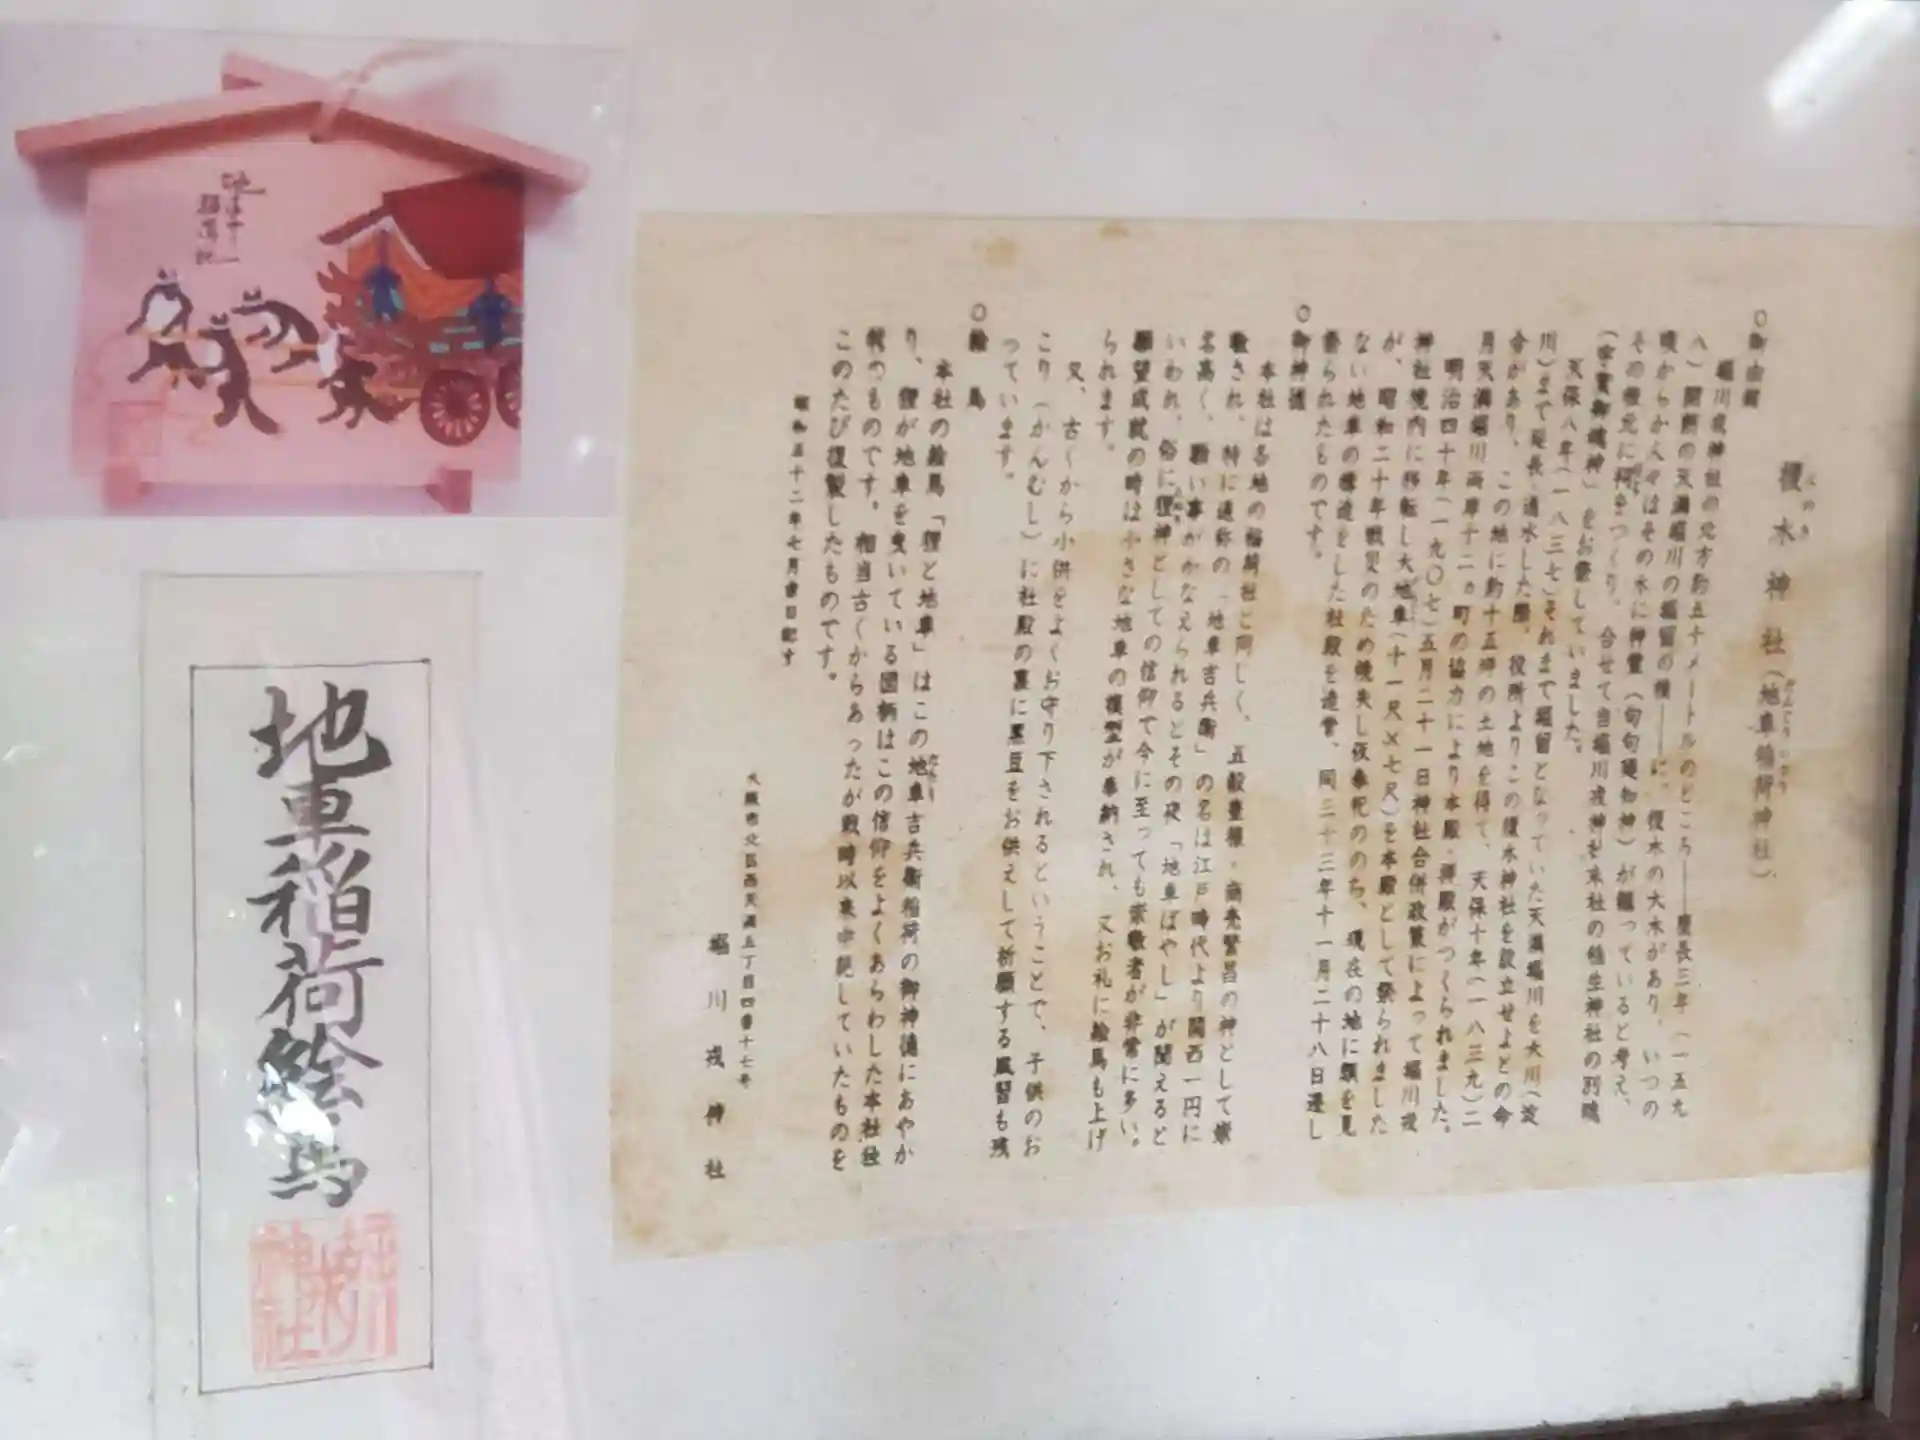 榎木神社（地車稲荷神社）
えのき
だんじりいなり
○御由緒
堀川戎神社の北方約五十メートルのところ――慶長三年（一五九
八）開削の天満堀川の堀留の横――に、榎木の大木があり、いつの
頃からか人々はその木に神霊（句句廼知神）が宿っていると考え、
その根元に祠をつくり、合せて当堀川戎神社末社の稲生神社の別魂
（宇賀御魂神）をお祭していました。
天保八年（一八三七）それまで堀留となっていた天満堀川を大川（淀
川）まで延長、通水した際、役所よりこの榎木神社を設立せよとの命
令があり、この地に約十五坪の土地を得て、天保十年（一八三九）二
月天満堀川両岸十二ヵ町の協力により本殿・拝殿がつくられました。
明治四十年（一九〇七）五月二十一日神社合併政策によって堀川戎
神社境内に移転し大地車（十一尺×七尺）を本殿として祭られました
が、昭和二十年戦災のため焼失し仮奉祀ののち、現在の地に類を見
ない地車の構造をした社殿を造営、同三十三年十一月二十八日遷し
祭られたものです。
○御神徳
本社は各地の稲荷社と同じく、五穀豊穣・商売繁昌の神として崇
敬され、特に通称の「地車吉兵衛」の名は江戸時代より関西一円に
名高く、願い事がかなえられるとその夜「地車ばやし」が聞えると
いわれ、俗に狸神としての信仰で今に至っても崇敬者が非常に多い。
願望成就の時は小さな地車の模型が奉納され、又お礼に絵馬も上げ
られます。
又、古くから小供をよくお守り下されるということで、子供のお
こり（かんむし）に社殿の裏に黒豆をお供えして祈願する風習も残
っています。
○絵馬
本社の絵馬「狸と地車」はこの地車吉兵衛稲荷の御神徳にあやか
だんじり
り、狸が地車を曳いている図柄はこの信仰をよくあらわした本社独
特のものです。相当古くからあったが戦時以来中絶していたものを
このたび復製したものです。
昭和五十二年七月吉日記す
大阪市北区西天満五丁目四番十七号
堀川戎神社
地車稲荷絵馬
堀川戎神社